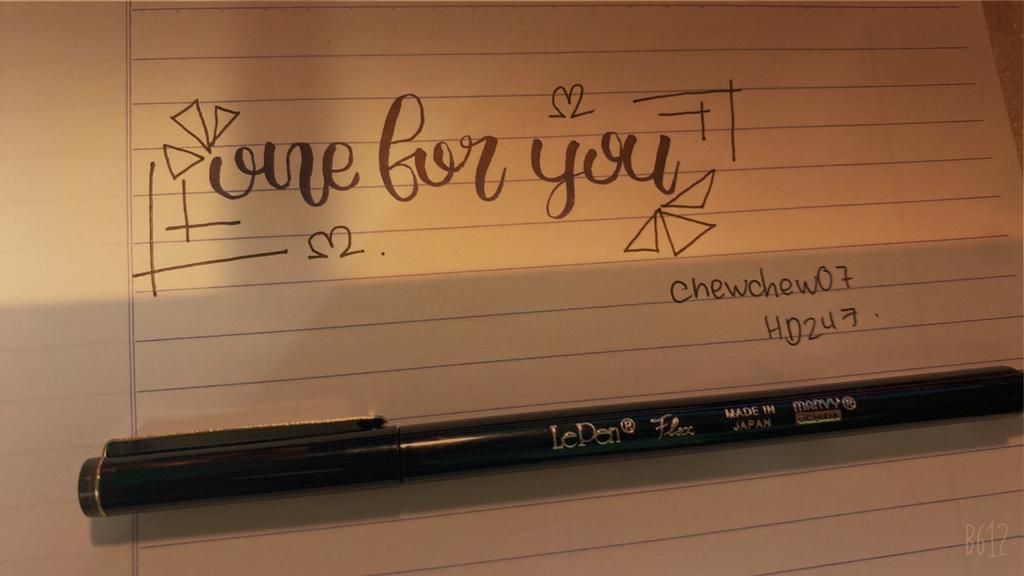 one for you
chewchew07
HD247.
LePen® Flex MADE IN JAPAN MARVY® UCHIDA
B612